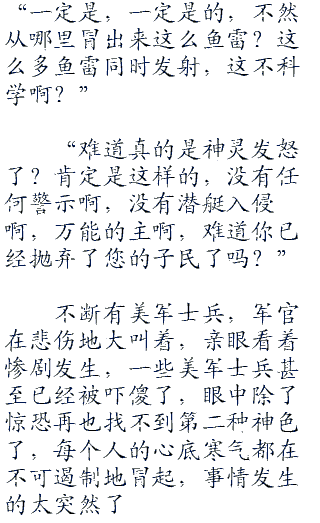 “一定是，一定是的，不然
从哪里冒出来这么鱼雷？这
么多鱼雷同时发射，这不科
学啊？”
“难道真的是神灵发怒
了？肯定是这样的，没有任
何警示啊，没有潜艇入侵
啊，万能的主啊，难道你已
经抛弃了您的子民了吗？”
不断有美军士兵，军官
在悲伤地大叫着，亲眼看着
惨剧发生，一些美军士兵甚
至已经被吓傻了，眼中除了
惊恐再也找不到第二种神色
了，每个人的心底寒气都在
不可遏制地冒起，事情发生
的太突然了